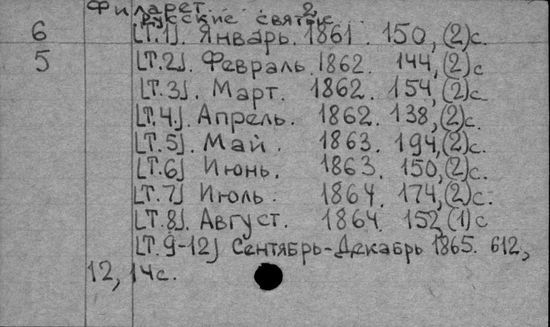 Филарет. 2.
Русские святые.
6 [Т.1]. Январь. 1861. 150, (2)с.
5 [Т.2]. Февраль. 1862. 144, (2)с
[Т.3]. Март. 1862. 154, (2)с.
[Т.4]. Апрель. 1862. 138, (2)с.
[Т.5]. Май. 1863. 194, (2)с.
[Т.6] Июнь. 1863. 150, (2)с.
[Т.7] Июль. 1864. 174, (2)с.
[Т.8]. Август. 1864. 152, (1)с
[Т.9-12] Сентябрь-Декабрь 1865. 612,
12, 14с.